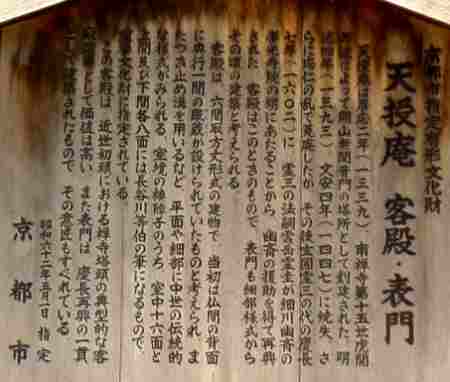 京都市指定有形文化財
天授庵 客殿・表門
天授庵は暦応二年(一三三九)南禅寺第十五世虎関
師錬によって開山無関普門の塔所として創建された。明
徳四年(一三九三)文安四年(一四四七)に焼失、さ
らに応仁の乱で荒廃したが、その後霊圭の代の慶長
七年(一六〇二)に、霊三の法嗣雲岳霊圭が細川幽斎の
室光寿院の甥にあたることから、幽斎の援助を得て再興
された。客殿はこのときのもので、表門も細部様式から
その頃の建築と考えられる。
客殿は、六間取方丈形式の建物で、当初は仏間の背面
に奥行一間の眠蔵が設けられていたものと考えられ、ま
た つき止め溝を用いるなど、平面や細部に中世の伝統的
な様式がみられる。室境の襖障子のうち、室中十六面と
上間及び下間各八面には長谷川等伯の筆になるもので、
重要文化財に指定されている。
この客殿は、近世初頭における禅寺塔頭の典型的な客
殿遺構として価値は高い。また表門は、慶長再興の一貫
として建築されたもので、その意匠もすぐれている。
昭和六十二年五月一日指定
京都市